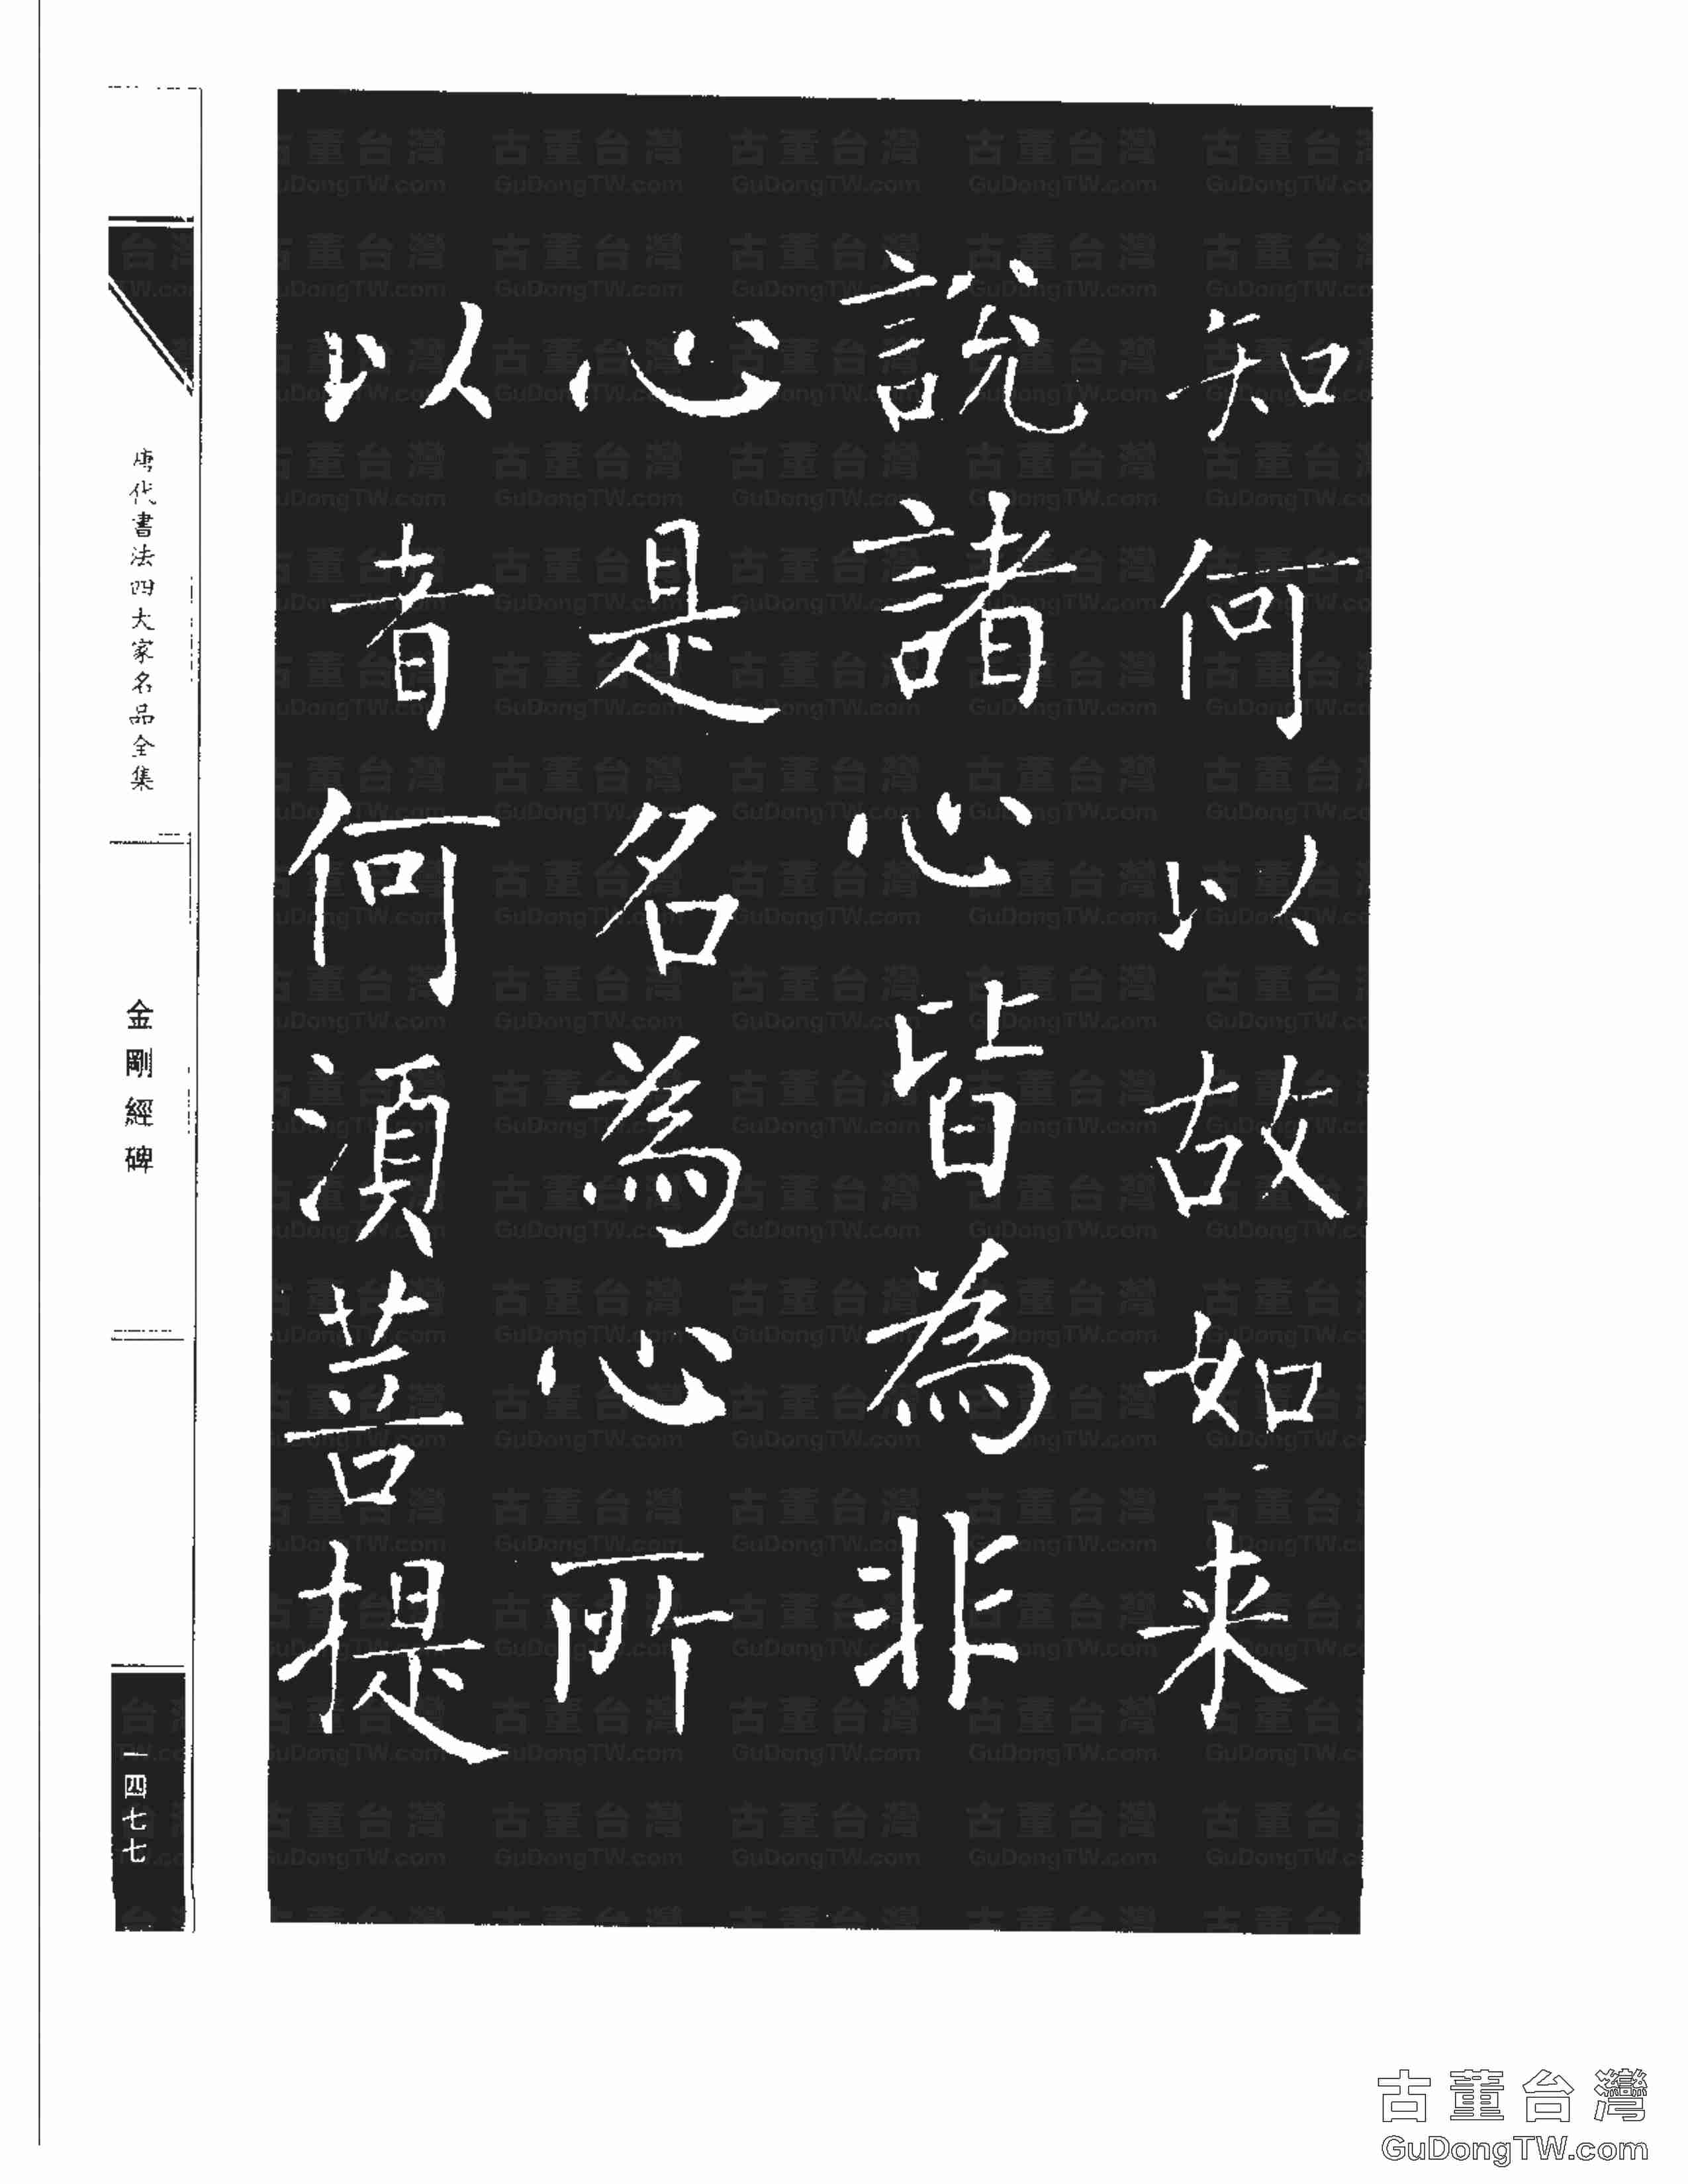 知何以故如来
說諸心皆為非
心是名為心所
以者何須菩提
唐代書法四大家名品全集
金剛經碑
一四七七
古董台灣
GuDongTW.com